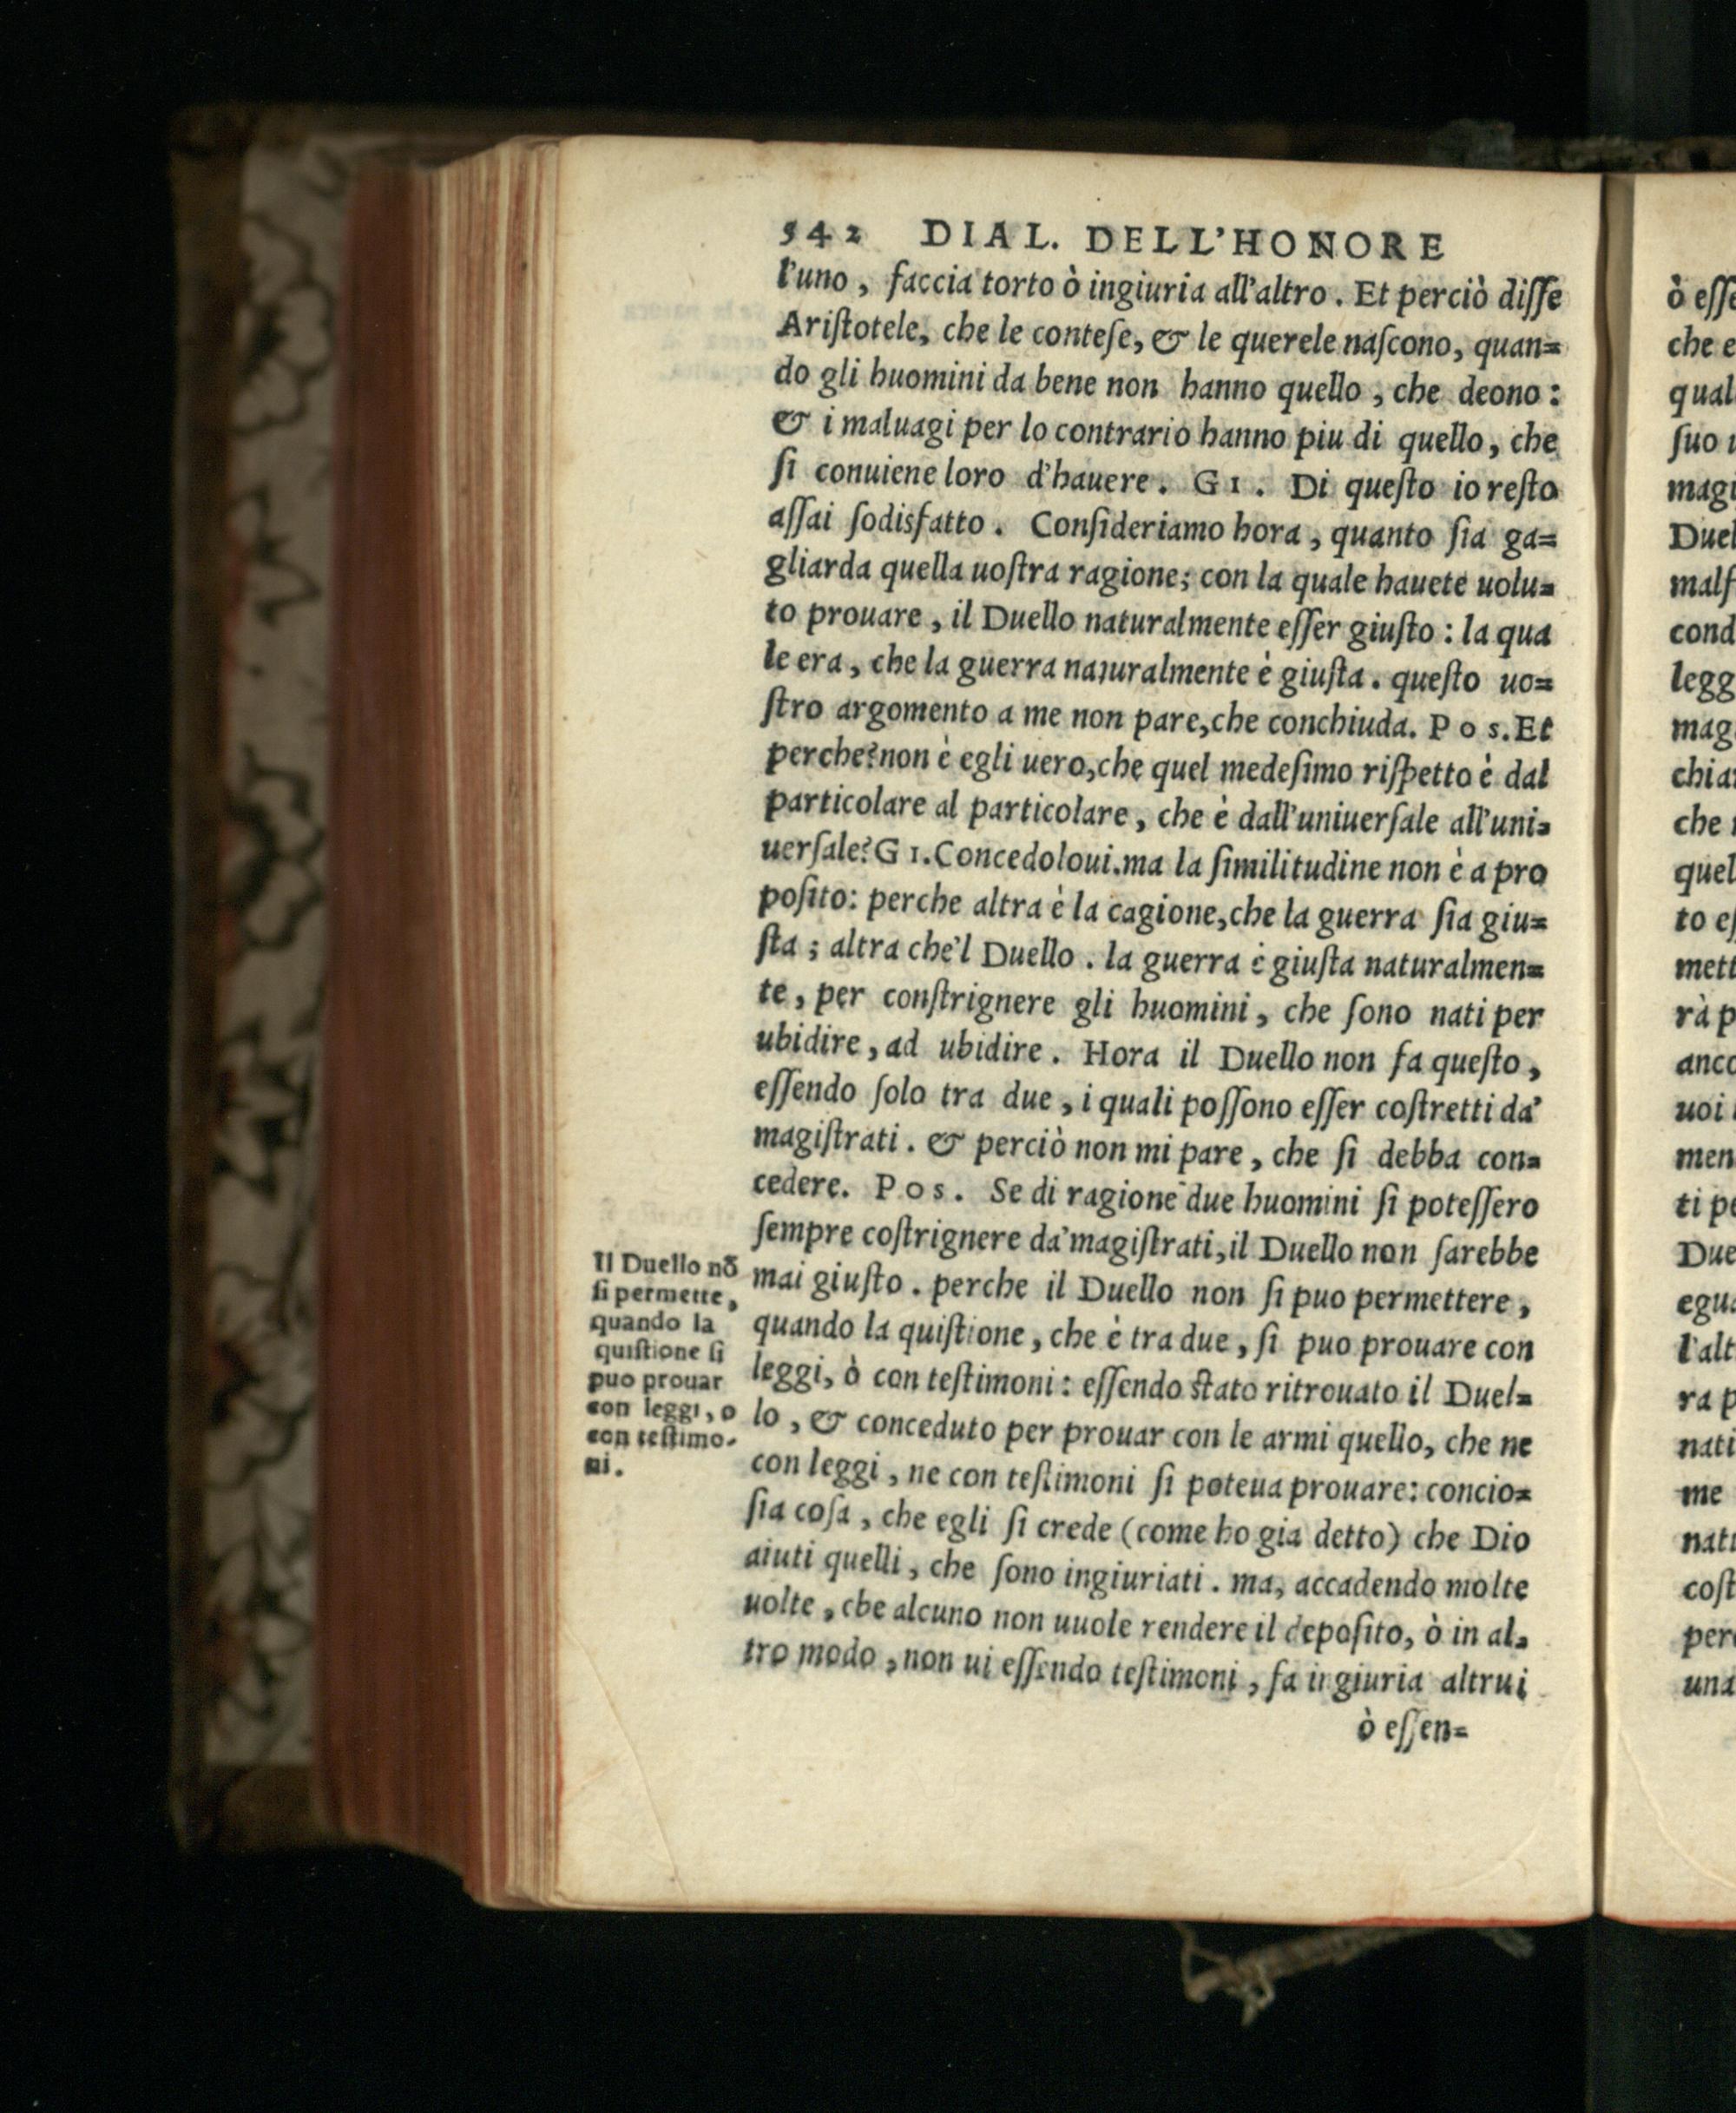 542 DIAL. DELL'HONORE
l'uno, faccia torto ò ingiuria all'altro. Et perciò diſſe
Ariſtotele, che le conteſe, & le querele naſcono, quan=
do gli huomini da bene non hanno quello, che deono:
& i maluagi per lo contrario hanno piu di quello, che
ſi conuiene loro d'hauere. GI. Di queſto io reſto
aſſai ſodisfatto. Conſideriamo hora, quanto ſia ga=
gliarda quella uoſtra ragione; con la quale hauete uolu=
to prouare, il Duello naturalmente eſſer giuſto: la qua
le era, che la guerra naturalmente è giuſta. queſto uo=
ſtro argomento a me non pare, che conchiuda. Pos. Et
perche? non è egli uero, che quel medeſimo riſpetto è dal
particolare al particolare, che è dall'uniuerſale all'uni=
uerſale? GI. Concedoloui. ma la ſimilitudine non è a pro
poſito: perche altra è la cagione, che la guerra ſia giu=
ſta; altra che'l Duello. la guerra è giuſta naturalmen=
te, per conſtrignere gli huomini, che ſono nati per
ubidire, ad ubidire. Hora il Duello non fa queſto,
eſſendo ſolo tra due, i quali poſſono eſſer coſtretti da'
magiſtrati. & perciò non mi pare, che ſi debba con=
cedere. Pos. Se di ragione due huomini ſi poteſſero
ſempre coſtrignere da'magiſtrati, il Duello non ſarebbe
mai giuſto. perche il Duello non ſi puo permettere,
quando la quiſtione, che è tra due, ſi puo prouare con
leggi, ò con teſtimoni: eſſendo ſtato ritrouato il Duel=
lo, & conceduto per prouar con le armi quello, che ne
con leggi, ne con teſtimoni ſi poteua prouare: concio=
ſia coſa, che egli ſi crede (come ho gia detto) che Dio
aiuti quelli, che ſono ingiuriati. ma, accadendo molte
uolte, che alcuno non uuole rendere il depoſito, ò in al=
tro modo, non ui eſſendo teſtimoni, fa ingiuria altrui
ò eſſen=
Il Duello nõ
ſi permette,
quando la
quiſtione ſi
puo prouar
con leggi, o
con teſtimo-
ni.
ò eſſe
che e
qual
ſuo
magi
Duel
malf
cond
legg
mag
chia
che
quel
to eſ
mett
rà p
anco
uoi
men
ti pe
Due
egua
l'alt
ra p
nati
me
natu
coſt
perc
una